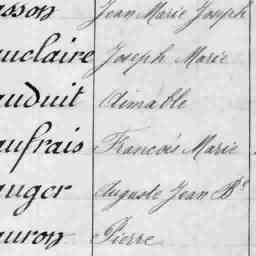 asson Jean Marie Joseph
auclaire Joseph Marie
auduit Aimable
aufrais Francois Marie
auger Auguste Jean Bte
auron Pierre